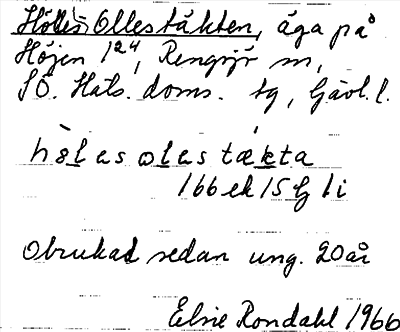 Höles-Ollestäkten, äga på
Höjen 1²⁴, Rengsjö sn,
SÖ. Häls. doms. tg, Gävl. l.
hòles oles tækta
166 ek 15 G 1 i
Obrukad sedan ung. 20 år
Elsie Rondahl 1966